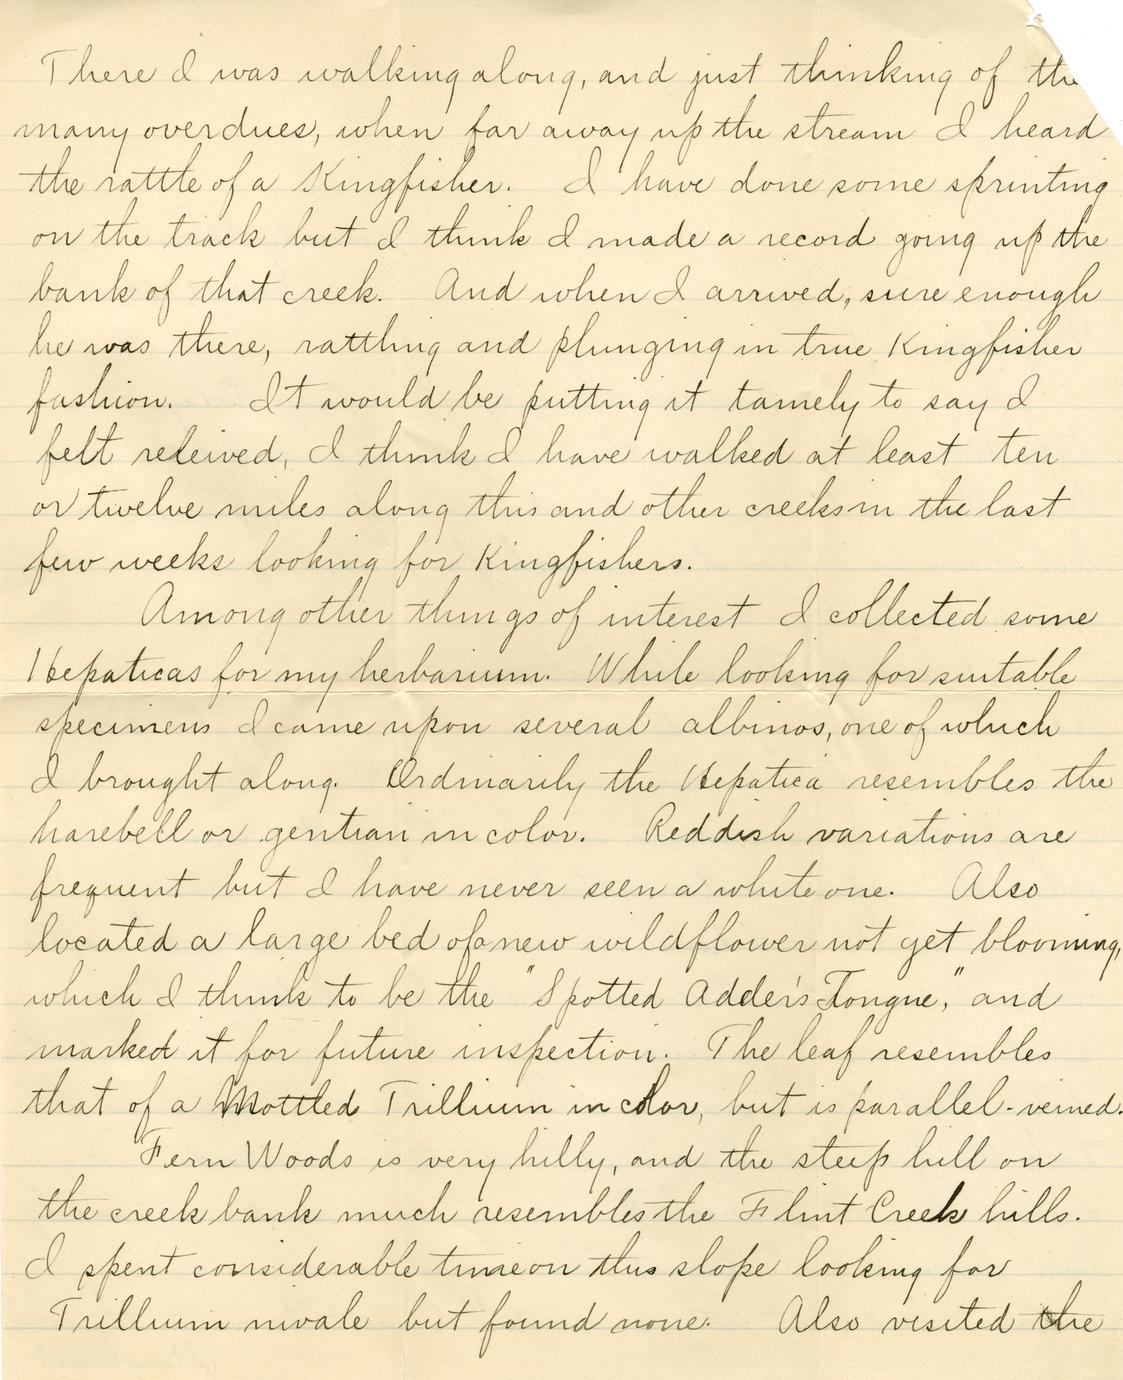 There I was walking along, and just thinking of the
many overdues, when far away up the stream I heard
the rattle of a Kingfisher. I have done some sprinting
on the track but I think I made a record going up the
bank of that creek. And when I arrived, sure enough
he was there, rattling and plunging in true Kingfisher
fashion. It would be putting it tamely to say I
felt releived, I think I have walked at least ten
or twelve miles along this and other creeks in the last
few weeks looking for Kingfishers.
Among other things of interest I collected some
Hepaticas for my herbarium. While looking for suitable
specimens I came upon several albinos, one of which
I brought along. Ordinarily the Hepatica resembles the
harebell or gentian in color. Reddish variations are
frequent but I have never seen a white one. Also
located a large bed of a new wildflower not yet blooming,
which I think to be the "Spotted Adder's Tongue," and
marked it for future inspection. The leaf resembles
that of a Mottled Trillium in color, but is parallel-veined.
Fern Woods is very hilly, and the steep hill on
the creek bank much resembles the Flint Creek hills.
I spent considerable time on this slope looking for
Trillium nivale but found none. Also visited the